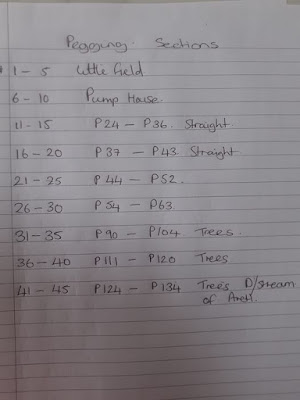 Pegging Sections
1 - 5 Little Field
6 - 10 Pump House
11 - 15 P24 - P36 Straight.
16 - 20 P37 - P43 Straight
21 - 25 P44 - P52.
26 - 30 P54 - P63
31 - 35 P90 - P104 Trees.
36 - 40 P111 - P120 Trees
41 - 45 P124 - P134 Trees D/Stream
of Arch.